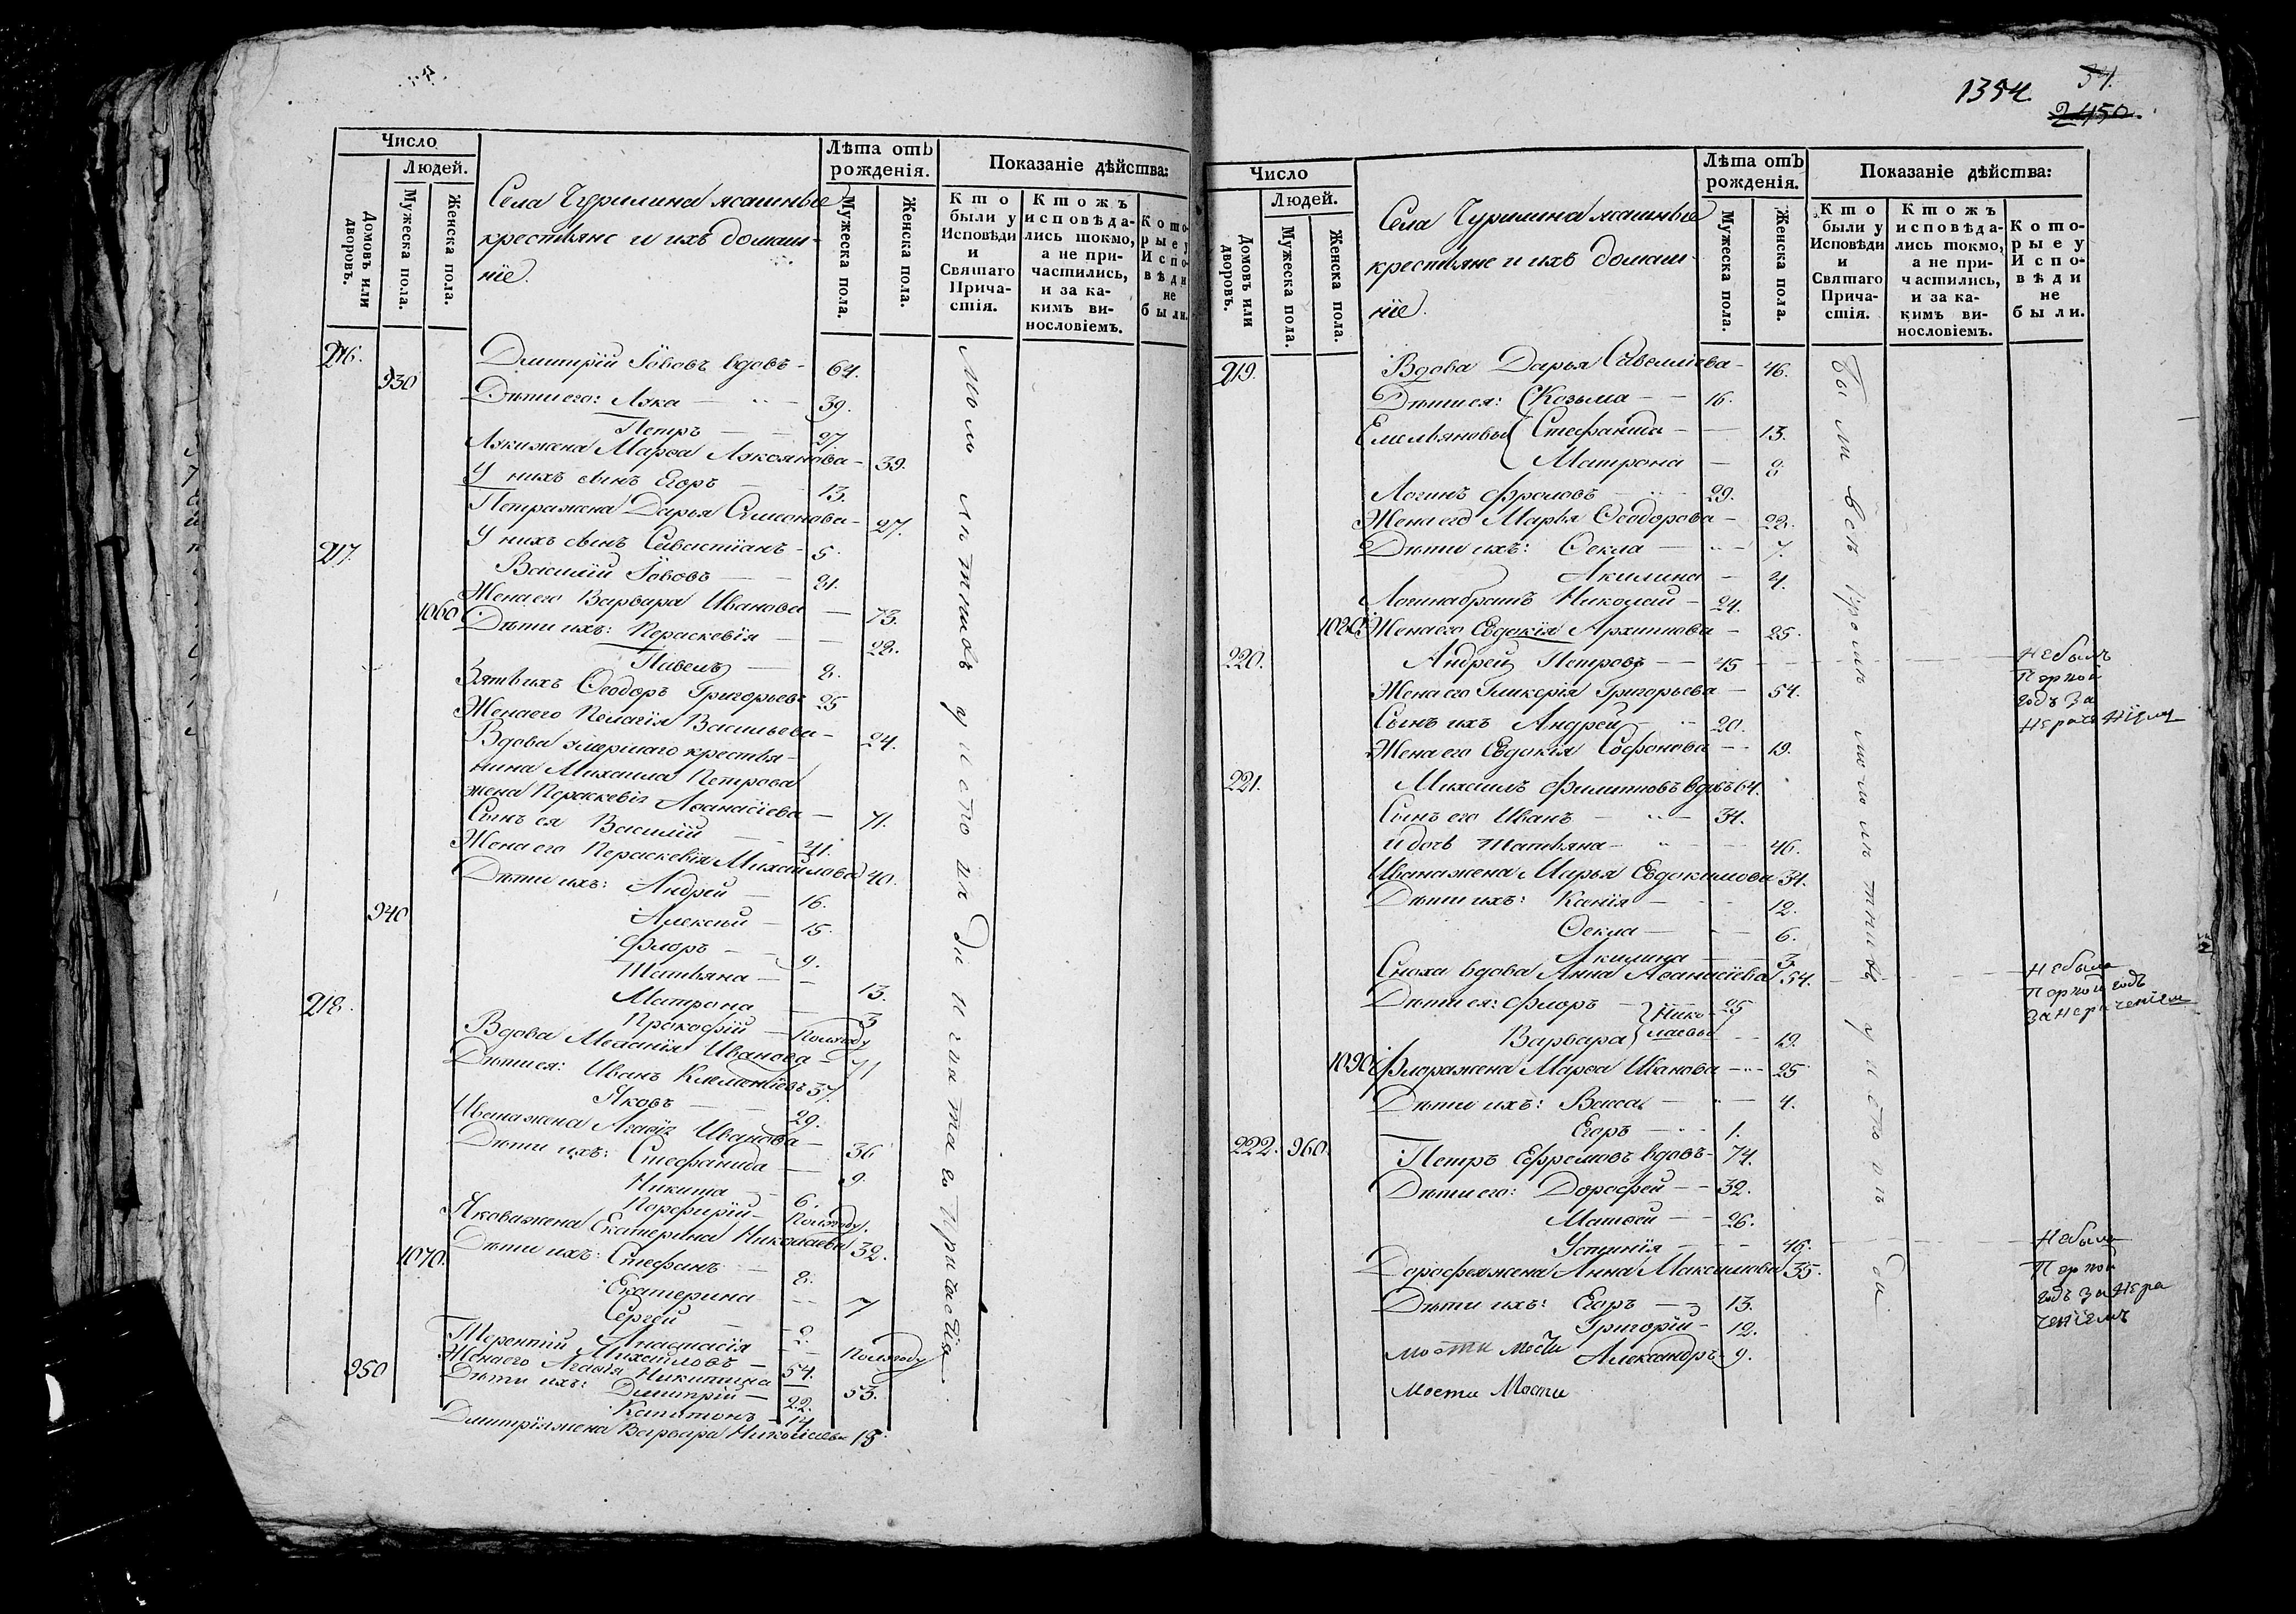 Число
Людей.
Домовъ или дворовъ.
Мужеска пола.
Женска пола.
Села Чурилина ясашные
крестьяне и ихъ домаш-
ніе.
Лѣта отъ рожденія.
Мужеска пола.
Женска пола.
Показаніе дѣйства:
Кто были у Исповѣди и Святаго Причастія.
Ктожъ исповѣдались токмо, а не причастились, и за какимъ винословіемъ.
Которые у Исповѣди не были.
216. Димитрій Іововъ вдовъ - 64.
930
Дѣти его: Лука — 39.
Петръ — 27.
Лукижена Марѳа Лукоянова - 39.
У нихъ сынъ Егоръ — 13.
Петражена Дарья Симонова - 27.
У нихъ сынъ Севастіанъ - 5.
217. Василій Іововъ — 81.
Жена его Варвара Иванова — 73.
1060 Дѣти ихъ: Параскевія — 22.
Павелъ — 8.
Зять ихъ Ѳеодоръ Григорьевъ 25
Жена его Пелагія Васильева - 24.
Вдова умершаго крестья-
нина Михаила Петрова
жена Параскевія Аѳанасіева — 71.
Сынъ ея Василій — 41.
Жена его Параскевія Михайлова 40.
Дѣти ихъ: Андрей — 16.
940 Алексѣй — 15.
Флоръ — 9.
Татьяна — 13.
Матрона — 3
Прокофій — Полугоду
218. Вдова Меланія Иванова — 71
Дѣти ея: Иванъ Климентіевъ 37.
Яковъ — 29.
Иванажена Агафія Иванова — 36
Дѣти ихъ: Стефанида — 9
Никита — 6.
Порфирій — Полугоду.
Яковажена Екатерина Николаева 32.
1070. Дѣти ихъ: Стефанъ — 8.
Екатерина — 7
Сергей — 2.
Анастасія — Полугоду
Терентій Михайловъ — 54.
Жена его Агафія Никитина 53.
950 Дѣти ихъ: Димитрій — 22.
Капитонъ — 14
Димитріяжена Варвара Николаева 18.
1354. 34.
2450.
Число
Людей.
Домовъ или дворовъ.
Мужеска пола.
Женска пола.
Села Чурилина ясашные
крестьяне и ихъ домаш-
ніе.
Лѣта отъ рожденія.
Мужеска пола.
Женска пола.
Показаніе дѣйства:
Кто были у Исповѣди и Святаго Причастія.
Ктожъ исповѣдались токмо, а не причастились, и за какимъ винословіемъ.
Которые у Исповѣди не были.
219. Вдова Дарья Савеліева — 46.
Дѣти ея: Козьма — 16.
Емельяновы Стефанида — 13.
Матрона — 8
Логинъ Фроловъ — 29.
Жена его Марья Ѳеодорова — 22.
Дѣти ихъ: Ѳекла — 7.
Акилина — 4.
Логинабратъ Николай — 24.
1080 Жена его Евдокія Архипова — 25.
220. Андрей Петровъ — 45 Небылъ
Первой
годъ за
Нераченіемъ
Жена его Гликерія Григорьева — 54.
Сынъ ихъ Андрей — 20.
Жена его Евдокія Софонова — 19.
221. Михаилъ Филиповъ вдовъ 64.
Сынъ его Иванъ — 34.
и дочь Татьяна — 46.
Иванажена Марья Евдокимова 34.
Дѣти ихъ: Ксенія — 12.
Ѳекла — 6.
Акилина — 3
Сноха вдова Анна Аѳанасіева 54. Небыла
Первой годъ
за нераченіем
Дѣти ея: Флоръ — Нико- 25
Варвара лаевы — 19.
1090 Флоражена Марѳа Иванова — 25
Дѣти ихъ: Васса — 4.
Егоръ — 1.
222. 960. Петръ Ефремовъ вдовъ - 74.
Дѣти его: Дорофей — 32.
Матвей — 26.
Устинія — 46. Небыла
Первой
годъ за нера
ченіемъ
Дорофеяжена Анна Максимова 35.
Дѣти ихъ: Егоръ — 13.
Григорій — 12.
Александръ - 9.
мости мости
Мости Мости